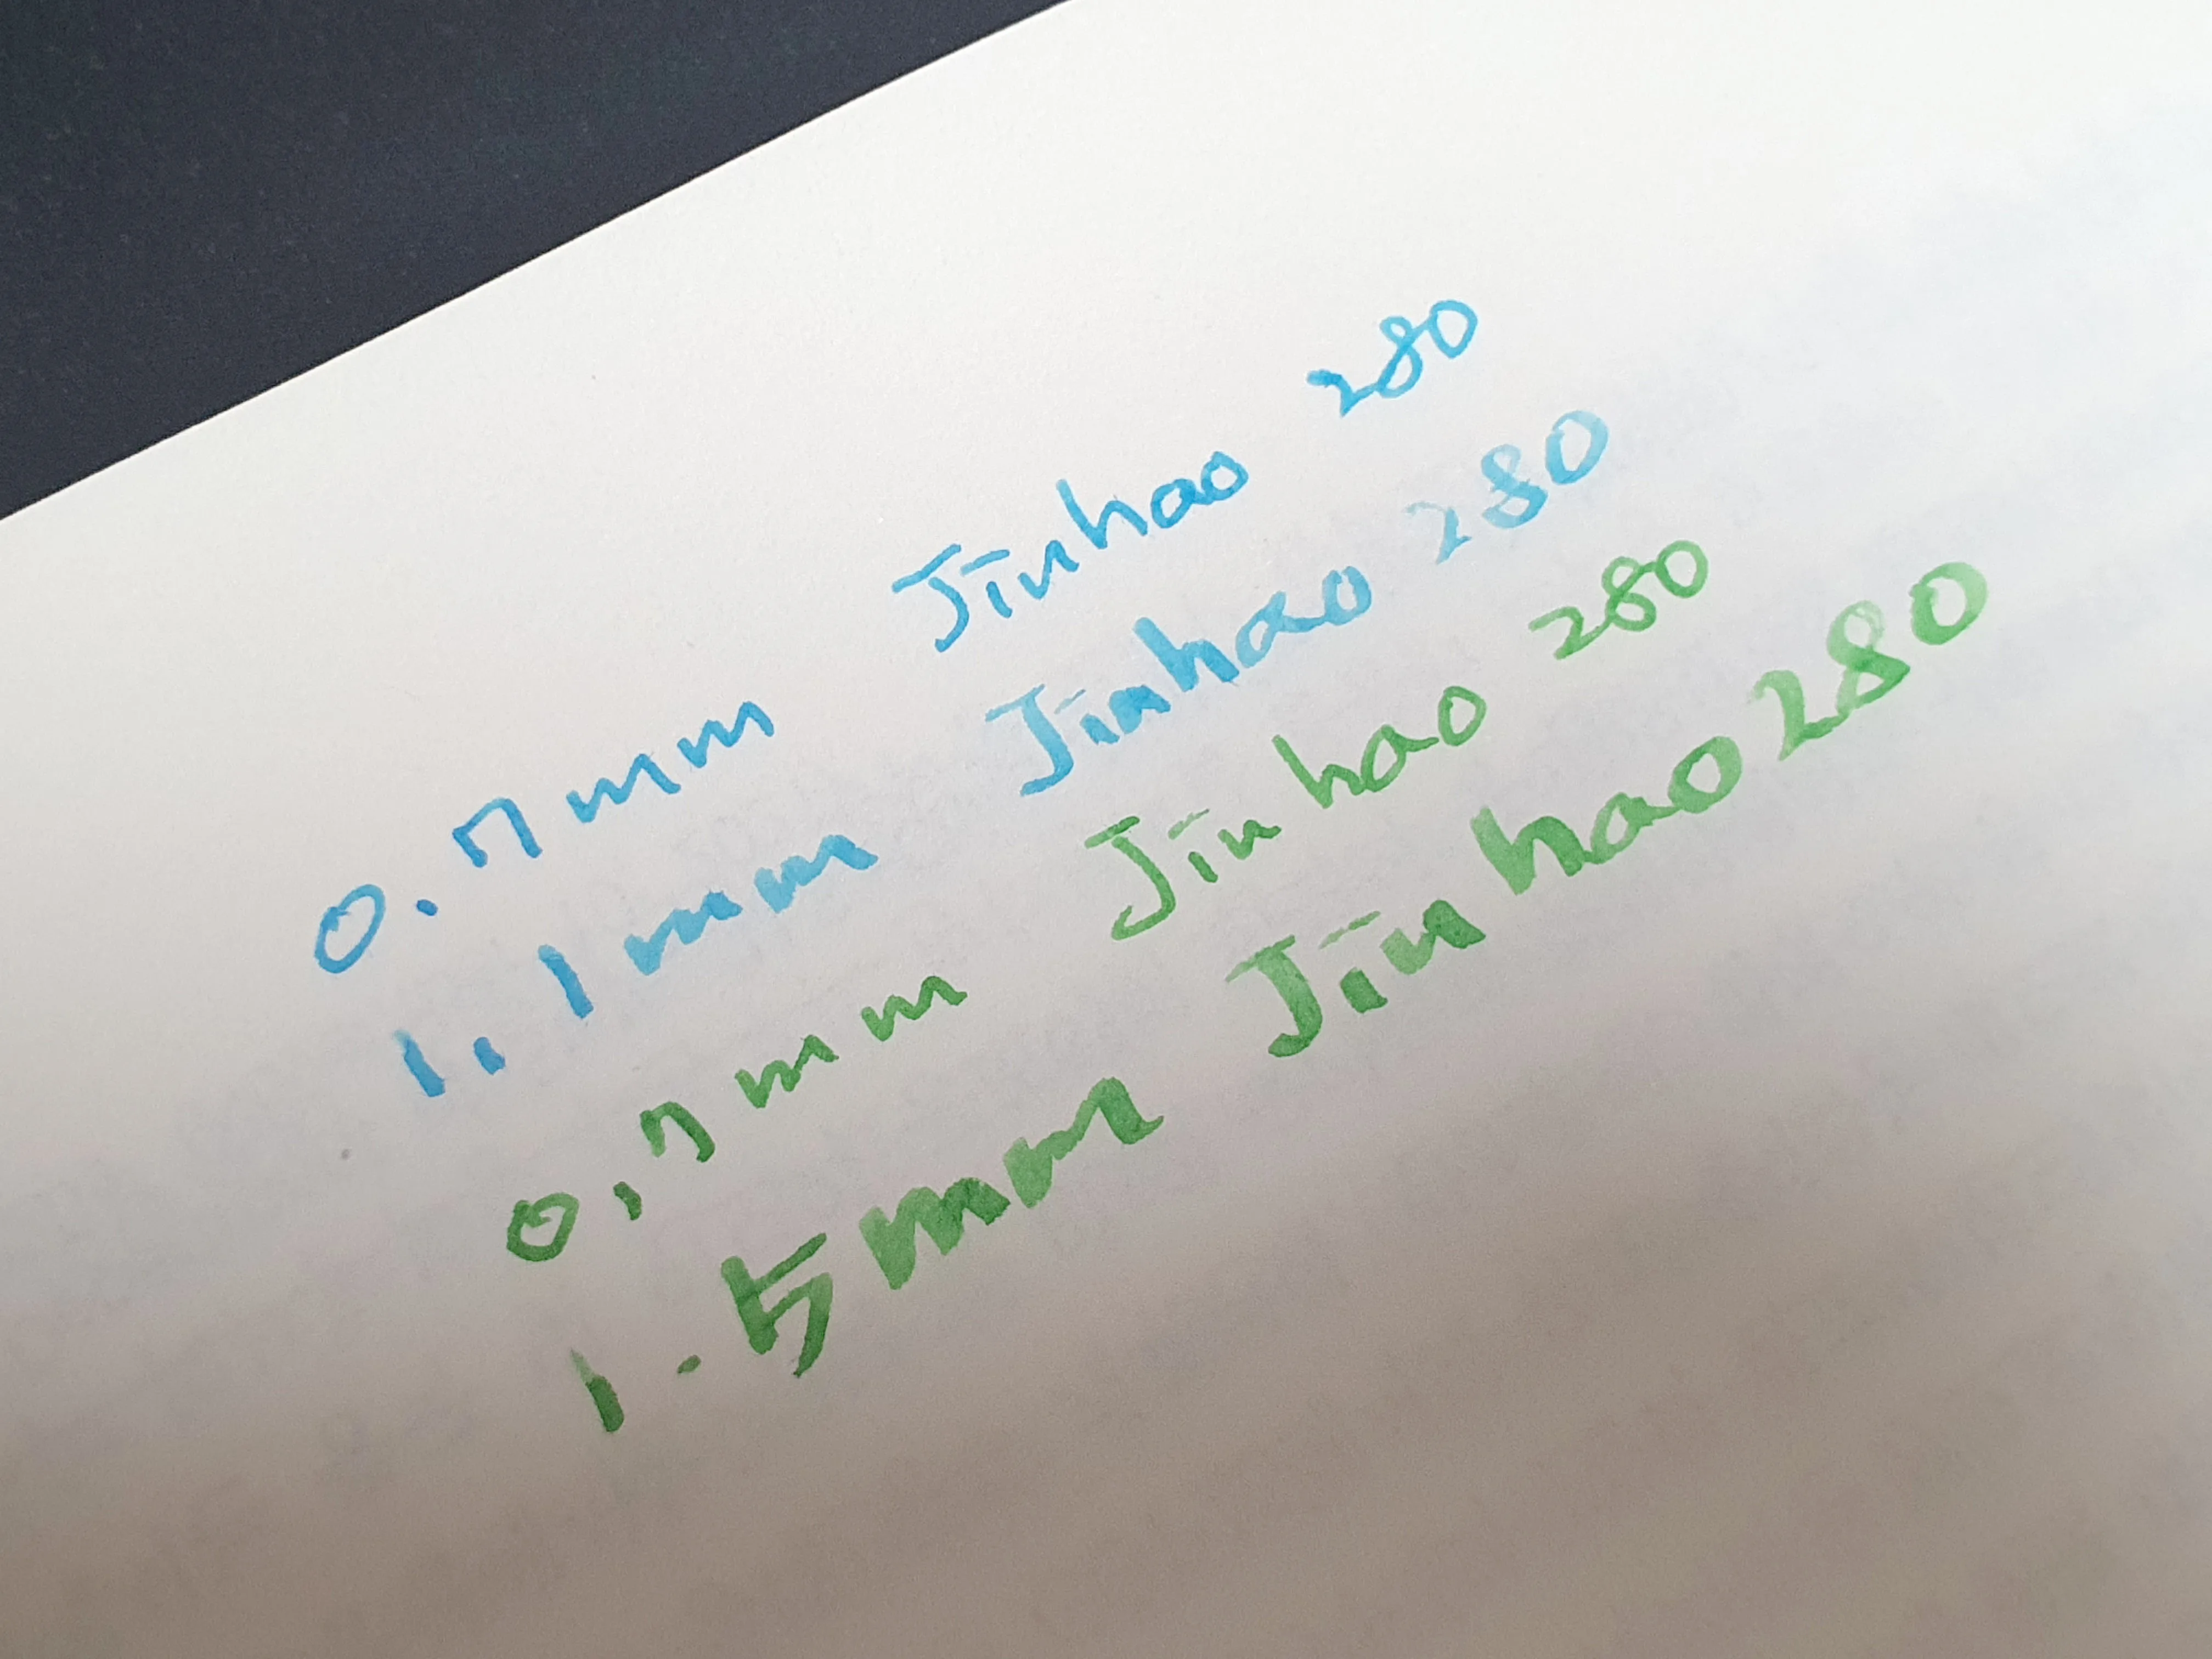 0.7mm Jinhao 280
1.1mm Jinhao 280
0.7mm Jinhao 280
1.5mm Jinhao 280